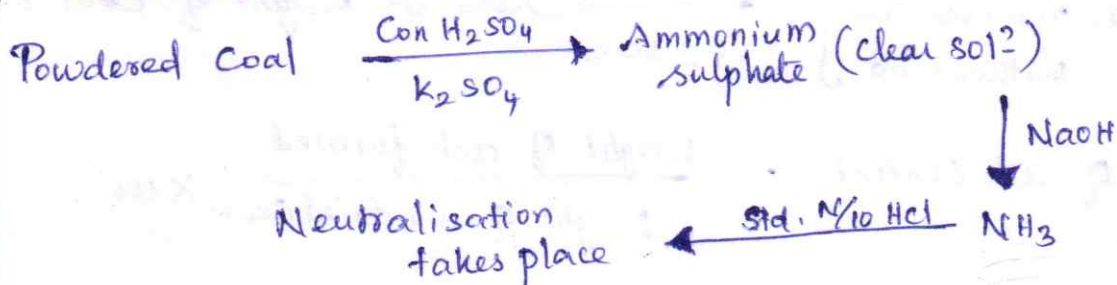 Powdered Coal Con H2SO4 K2SO4 Ammonium sulphate (clear sol?)
NaOH
Neutralisation takes place Std. N/10 HCl NH3